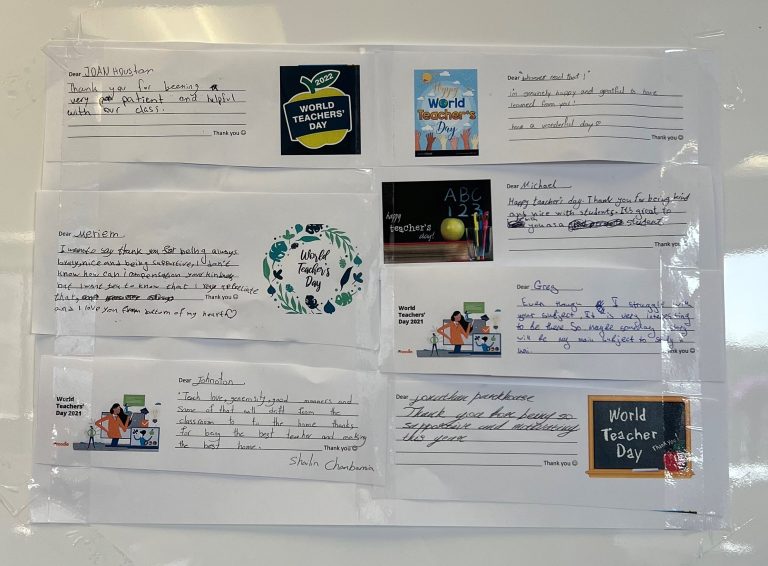 Dear JOAN Houston
Thank you for beering
very patient and helpful
with our class.
Thank you ☺
2022
WORLD
TEACHERS'
DAY
Happy
World
Teacher's
Day
Dear "whoever read that!"
im genuinely happy and grateful to have
learned from you!
have a wonderful day ☺
Thank you ☺
Dear Meriem
I want to say thank you for being always
nice and being supportive, I don't
know how can I your kindness
but I want you to know that I appreciate
that,
Thank you ☺
and I love you from bottom of my heart ♡
World
Teacher's
Day
ABC
123
happy
teacher's
day!
Dear Michael
Happy teacher's day. Thank you for being kind
and nice with students. It's great to
you as a student
Thank you ☺
World
Teachers'
Day 2021
moodle
Dear Greg
Even though I struggle with
your subject. It is very interesting
to be there So maybe someday
will be my main subject to study
Thank you ☺
World
Teachers'
Day 2021
moodle
Dear Johnaton
"Teach love, generosity, good manners and
some of that will drift from the
classroom to to the home thanks
for being the best teacher and making
the best home.
Thank you ☺
Dear jonathan parkhouse
Thank you for being so
supportive and
this year
Thank you ☺
World
Teacher
Day
Thank you